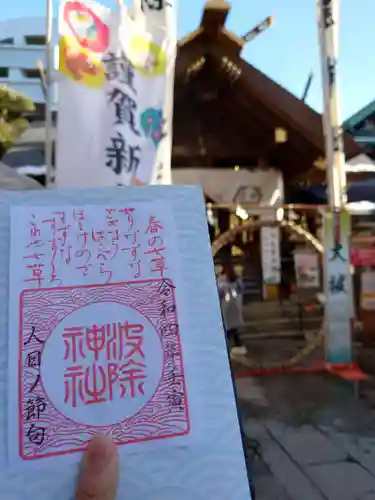 謹賀新
春の七草
せりなずな
ごぎょう
はこべら
ほとけのざ
すずな
すずしろ
これや七草
令和四年壬寅
波除
神社
人日ノ節句
大祓